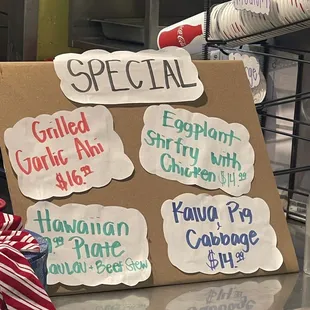 SPECIAL
Grilled
Garlic Ahi
$16.
Eggplant
Stir fry with
Chicken $14.
Hawaiian
Plate
+ Beef Stew
Kalua Pig
&
Cabbage
$14.